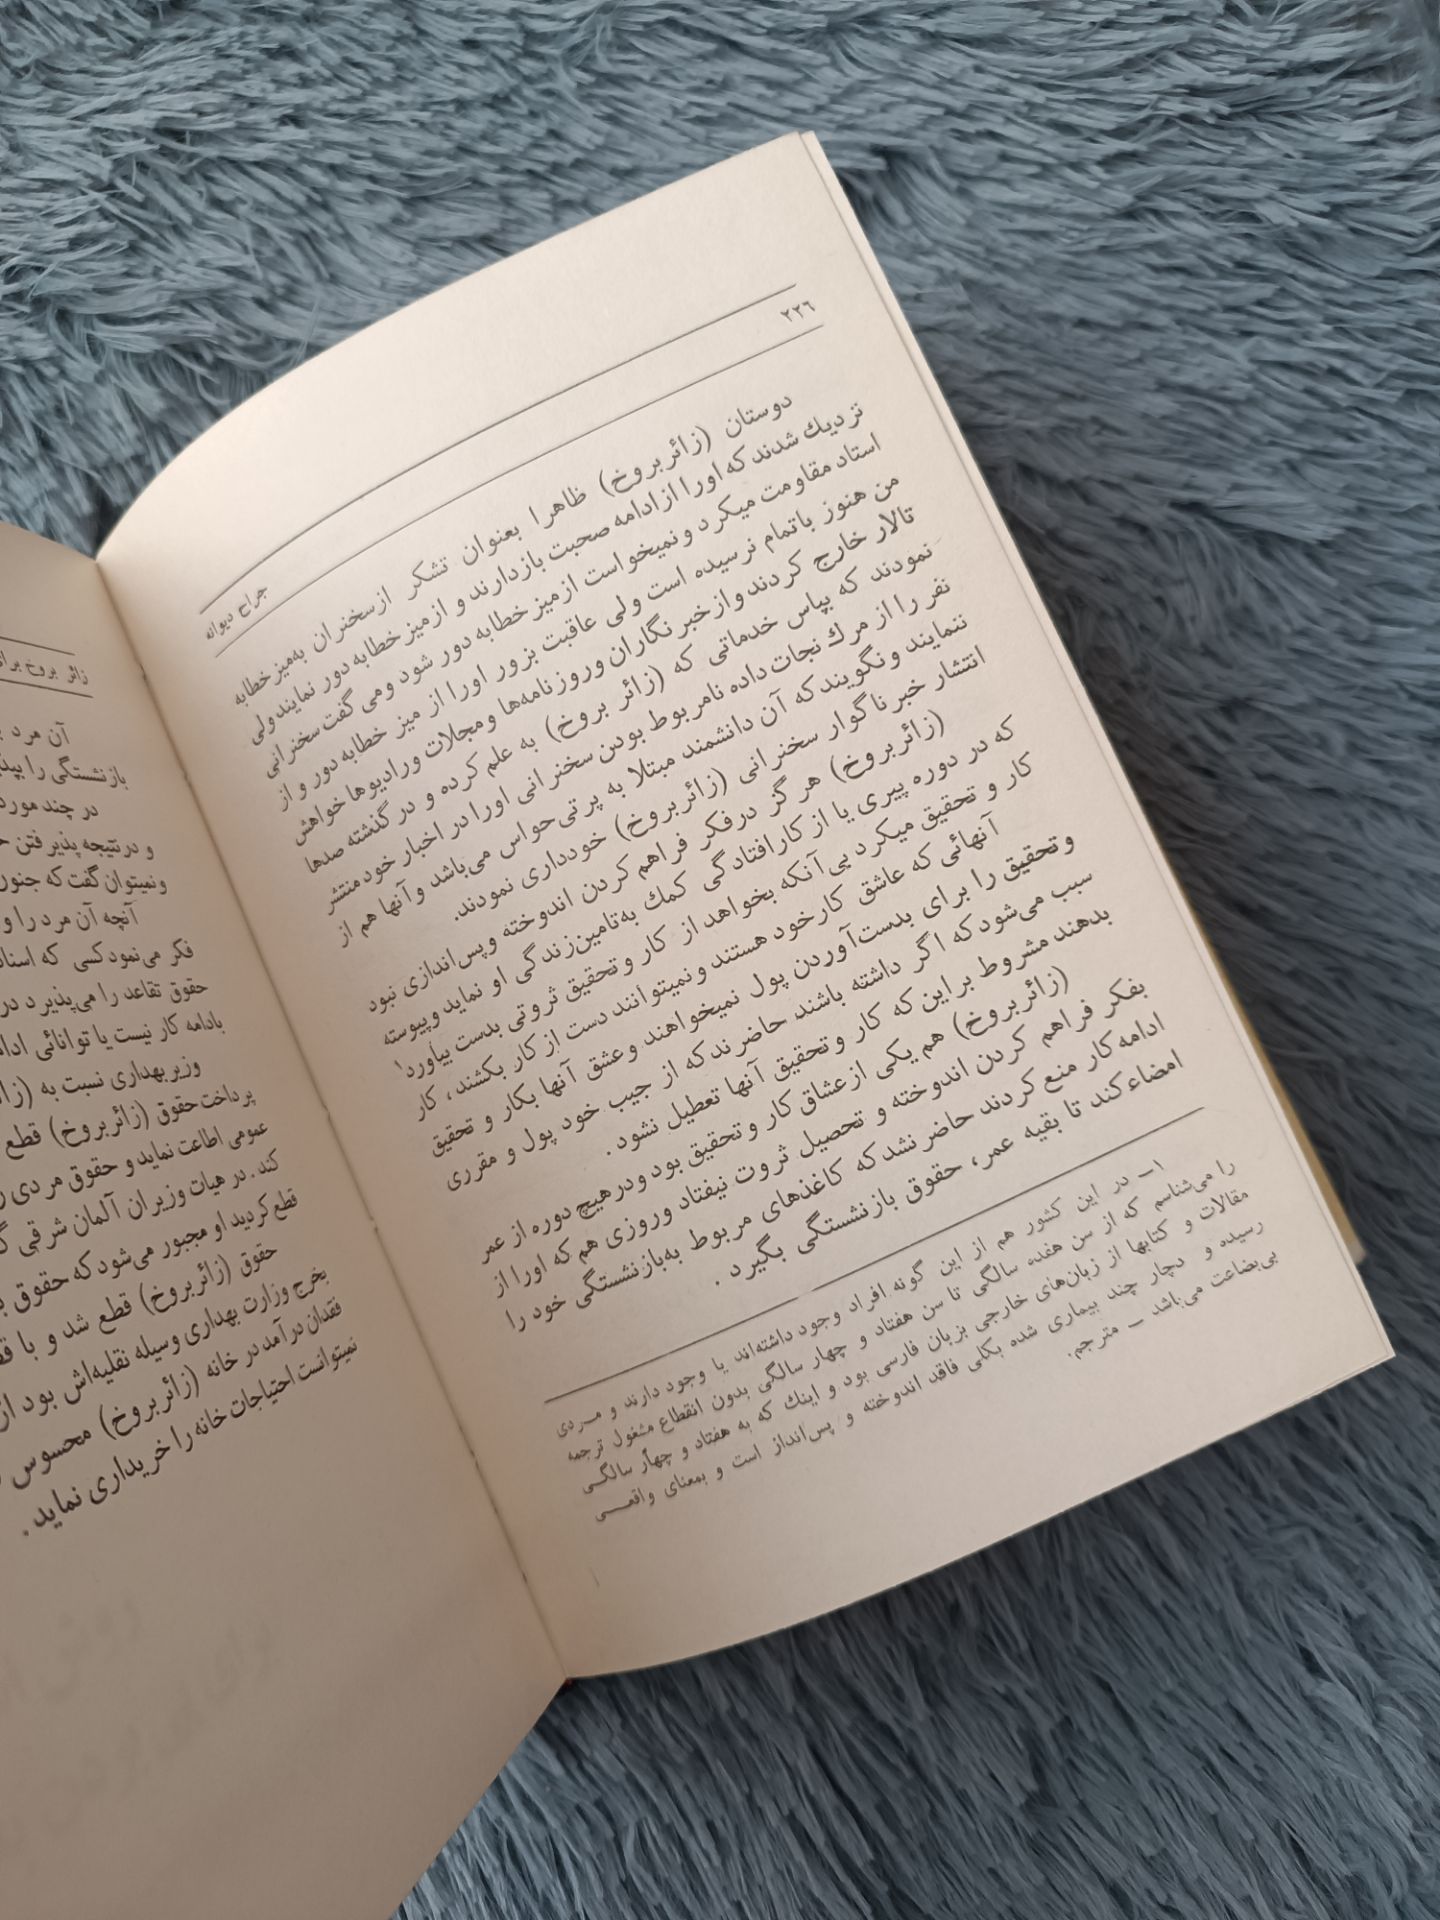 ۲۲۶
جراح دیوانه
دوستان (زائربروخ) ظاهرا بعنوان تشکر ازسخنران به‌میز خطابه
نزدیك شدند که اورا ازادامه صحبت بازدارند و ازمیز خطابه دور نمایندولی
استاد مقاومت میکرد و نمیخواست ازمیز خطابه دور شود ومی گفت سخنرانی
من هنوز باتمام نرسیده است ولی عاقبت بزور اورا از میز خطابه دور و از
تالار خارج کردند وازخبر نگاران وروزنامه‌ها ومجلات ورادیوها خواهش
نمودند که بپاس خدماتی که (زائر بروخ) به علم کرده و در گذشته صدها
نفر را از مرك نجات داده نامربوط بودن سخنرانی اورا در اخبار خود منتشر
ننمایند و نگویند که آن دانشمند مبتلا به پرتی‌حواس می‌باشد و آنها هم از
انتشار خبر ناگوار سخنرانی (زائربروخ) خودداری نمودند.
(زائربروخ) هرگز درفکر فراهم کردن اندوخته وپس‌اندازی نبود
که در دوره پیری یا از کارافتادگی کمك به‌تامین‌زندگی او نماید وپیوسته
کار و تحقیق میکرد بی‌آنکه بخواهد از کار و تحقیق ثروتی بدست بیاورد۱
آنهائی که عاشق کارخود هستند و نمیتوانند دست از کار بکشند، کار
وتحقیق را برای بدست‌آوردن پول نمیخواهند وعشق آنها بکار و تحقیق
سبب می‌شود که اگر داشته باشند حاضرند که از جیب خود پول و مقرری
بدهند مشروط براین که کار وتحقیق آنها تعطیل نشود.
(زائربروخ) هم یکی ازعشاق کار وتحقیق بود ودرهیچ دوره از عمر
بفکر فراهم کردن اندوخته و تحصیل ثروت نیفتاد وروزی هم که اورا از
ادامه کار منع کردند حاضر نشد که کاغذهای مربوط به‌بازنشستگی خود را
امضاء کند تا بقیه عمر، حقوق بازنشستگی بگیرد.
۱ـ در این کشور هم از این گونه افراد وجود داشته‌اند یا وجود دارند و مـردی
را می‌شناسم که از سن هفده سالگی تا سن هفتاد و چهار سالگی بدون انقطاع مشغول ترجمه
مقالات و کتابها از زبان‌های خارجی بزبان فارسی بود و اینك که به هفتاد و چهار سالگی
رسیده و دچار چند بیماری شده بکلی فاقد اندوخته و پس‌انداز است و بمعنای واقعـی
بی‌بضاعت می‌باشد ـ مترجم.
زائر بروخ
آن مرد
بازنشستگی را
در چند مورد
و درنتیجه پذیرفتن
ونمیتوان گفت که جنون
آنچه آن مرد را و
فکر می‌نمود کسی که
حقوق تقاعد را می‌پذیرد
بادامه کار نیست یا توانائی
وزیر بهداری نسبت به
پرداخت‌حقوق (زائربروخ) قطع
عمومی اطاعت نماید و حقوق مردی
کند. در هیات وزیران آلمان شرقی
قطع کردید او مجبور می‌شود که حقوق
حقوق (زائربروخ) قطع شد و با
بخرج وزارت بهداری وسیله نقلیه‌اش بود
فقدان درآمد در خانه (زائربروخ) محسوس
نمیتوانست احتیاجات خانه را خریداری نماید.